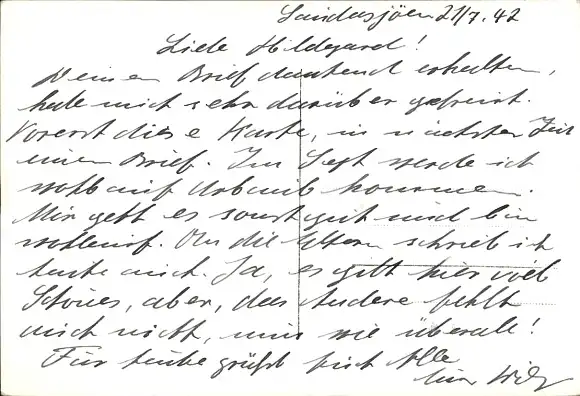 Sandesjöen 21/7. 42
Liebe Hildegard!
Deinen Brief dankend erhalten,
habe mich sehr darüber gefreut.
Vorerst diese Karte, in nächster Zeit
einen Brief. Im Sept werde ich
wohl auf Urlaub kommen.
Mir geht es sonst gut und bin
wohlauf. An die Eltern schrieb ich
heute auch. Ja, es gibt hier viel
Schönes, aber, das Andere fehlt
auch nicht, nun wie überall!
Für heute grüßt Alle
Euer Willy